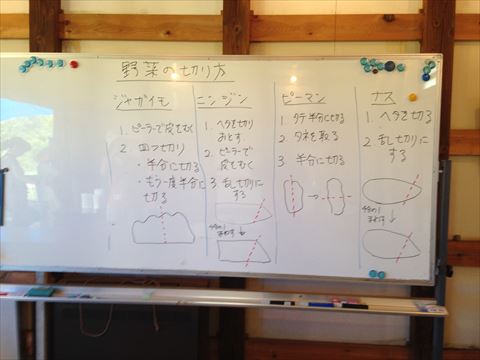 野菜の切り方
ジャガイモ
1. ピーラーで皮をむく
2. 四つ切り
・半分に切る
・もう一度半分に
切る
ニンジン
1. ヘタを切り
おとす
2. ピーラーで
皮をむく
3. 乱切りに
する
ピーマン
1. タテ半分に切る
2. タネを取る
3. 半分に切る
ナス
1. ヘタを切る
2. 乱切りに
する